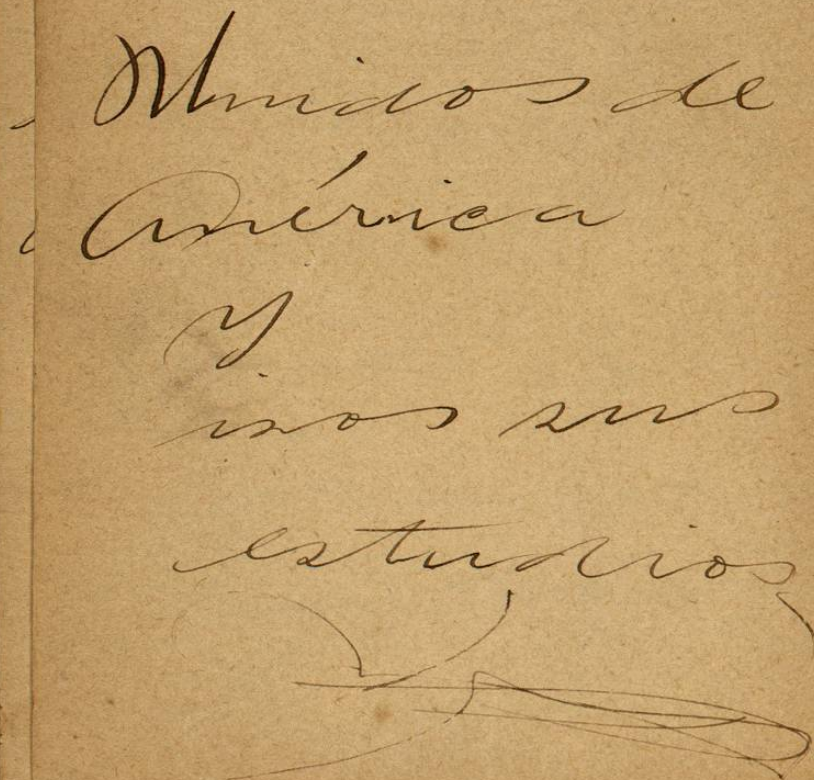 Unidos de
América
y
isos sus
estudios